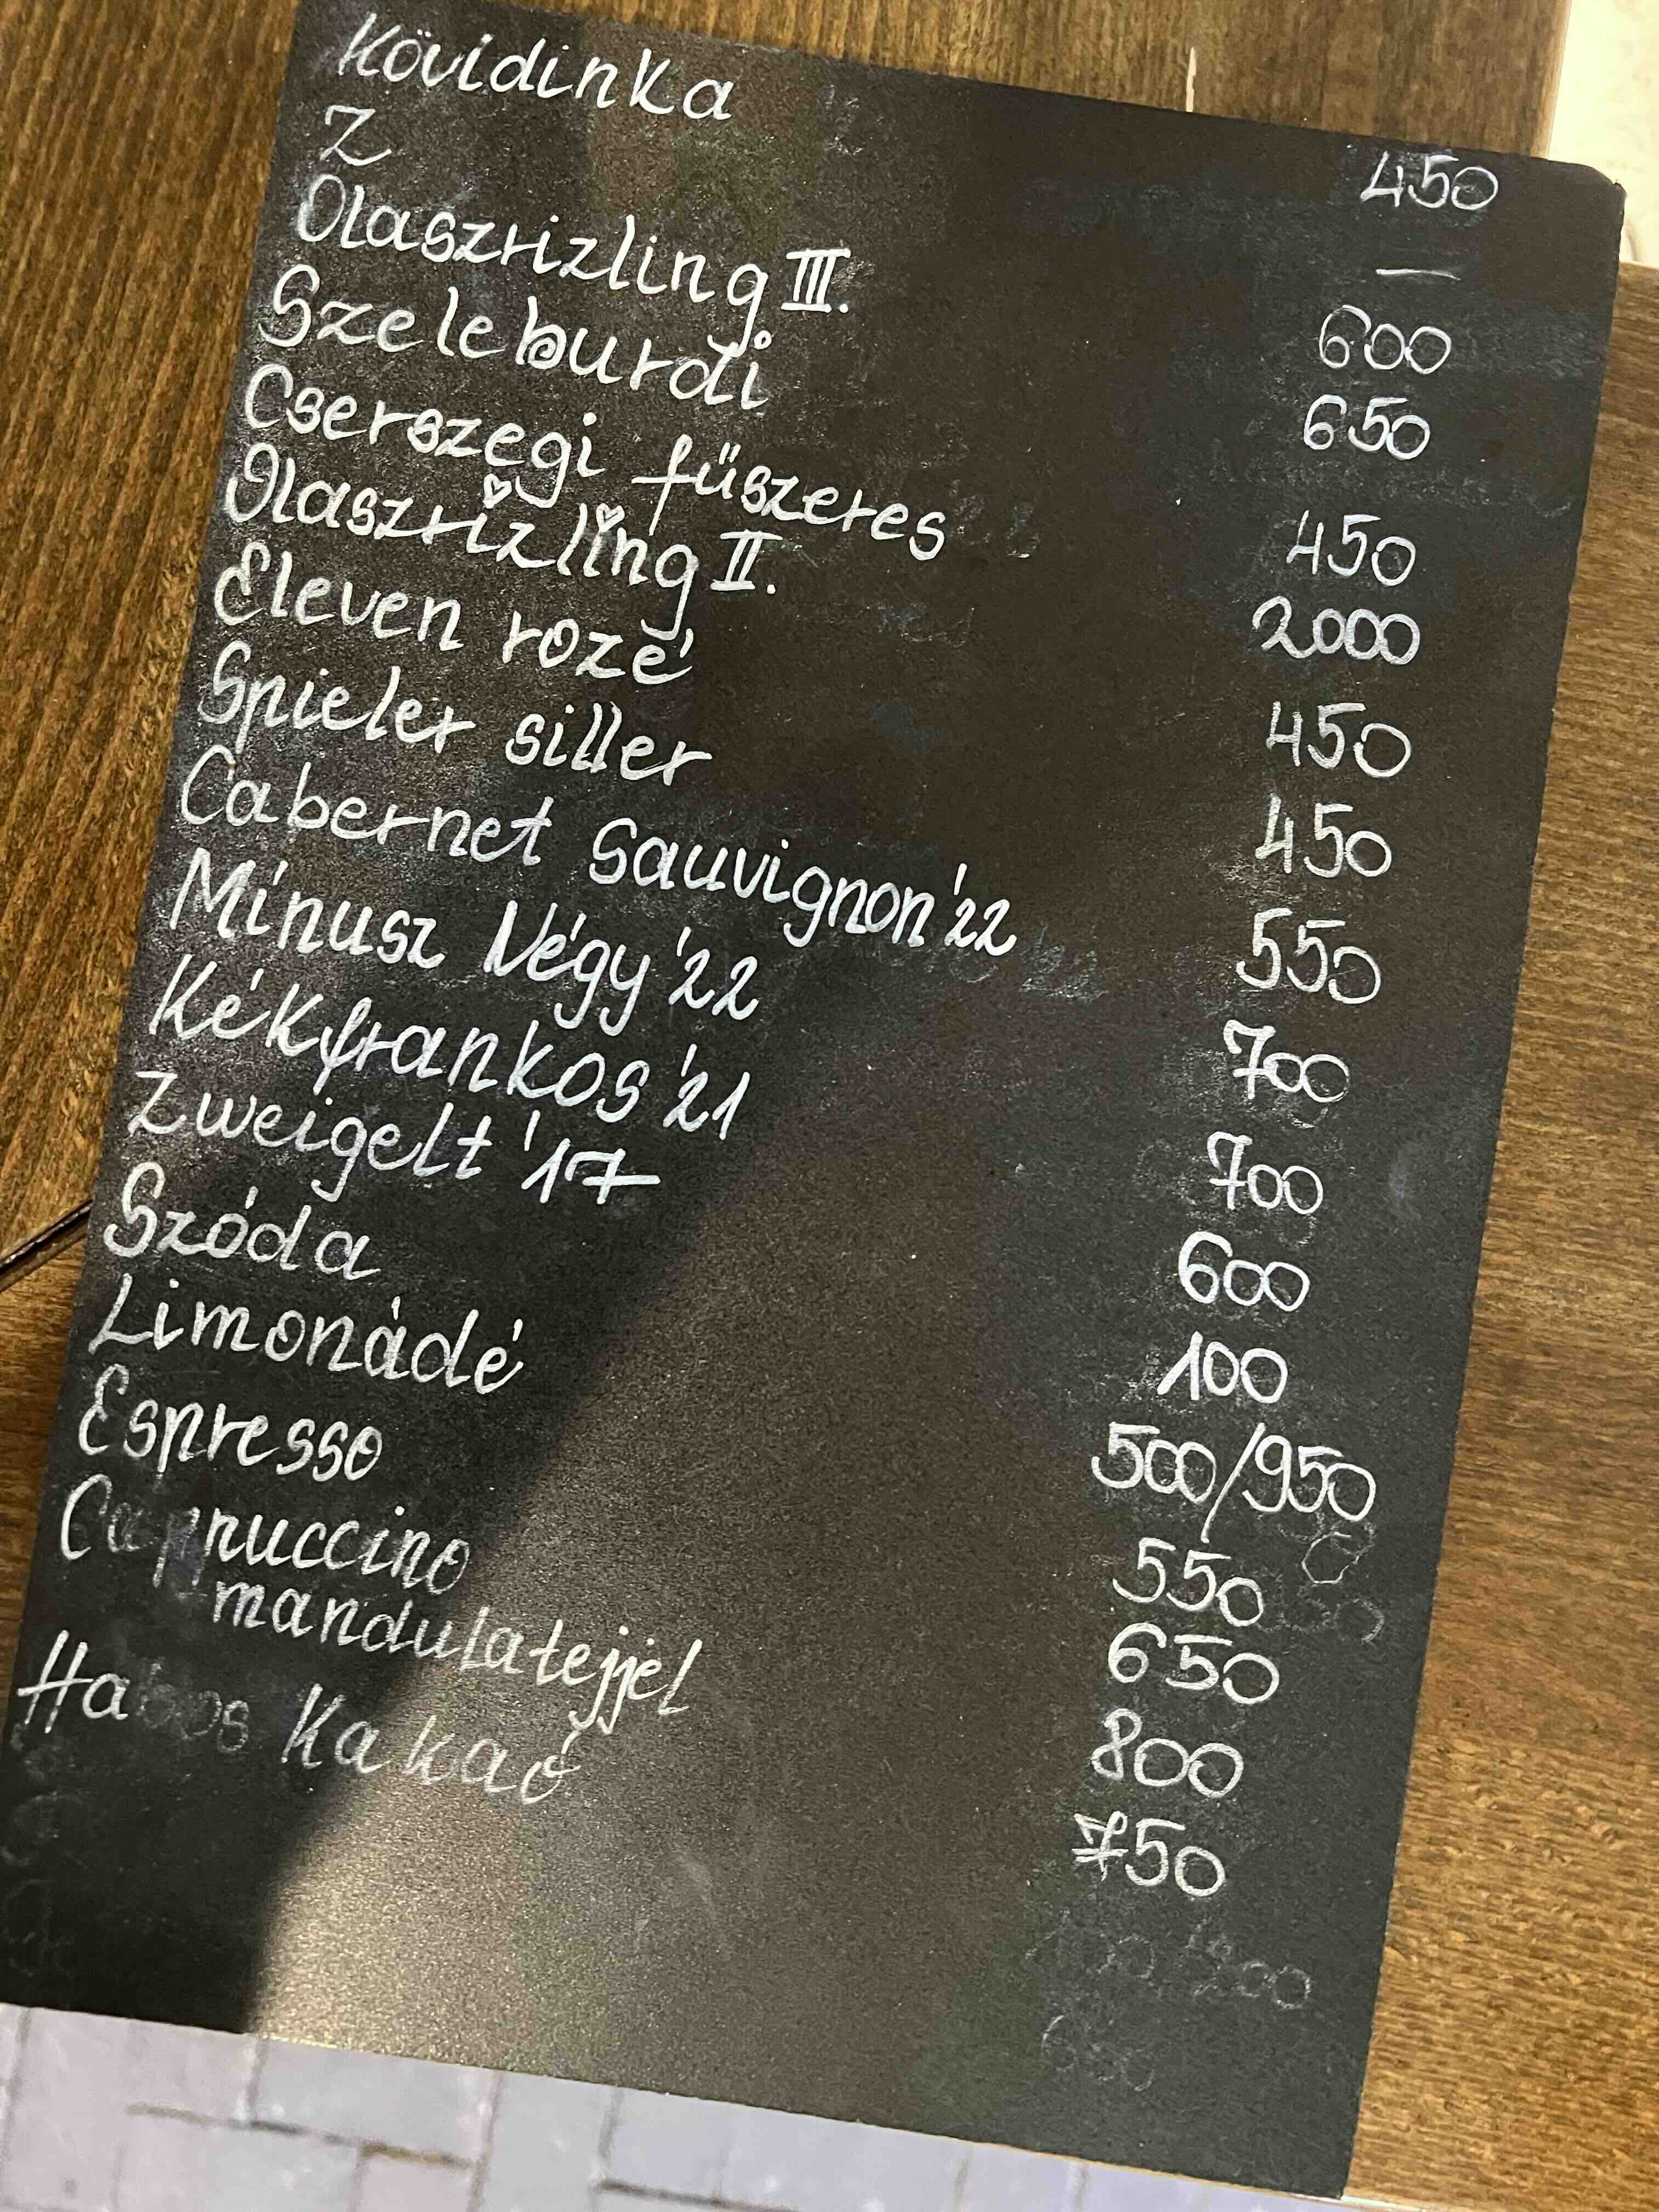 Kövidinka 450
Z —
Olaszrizling III. 600
Szeleburdi 650
Cserszegi fűszeres 450
Olaszrizling II. 2000
Eleven rozé 450
Spieler siller 450
Cabernet Sauvignon '22 550
Mínusz Négy '22 700
Kékfrankos '21 700
Zweigelt '17 600
Szóda 100
Limonádé 500/950
Espresso 550
Cappuccino 650
mandulatejjel 800
Habos Kakaó 750